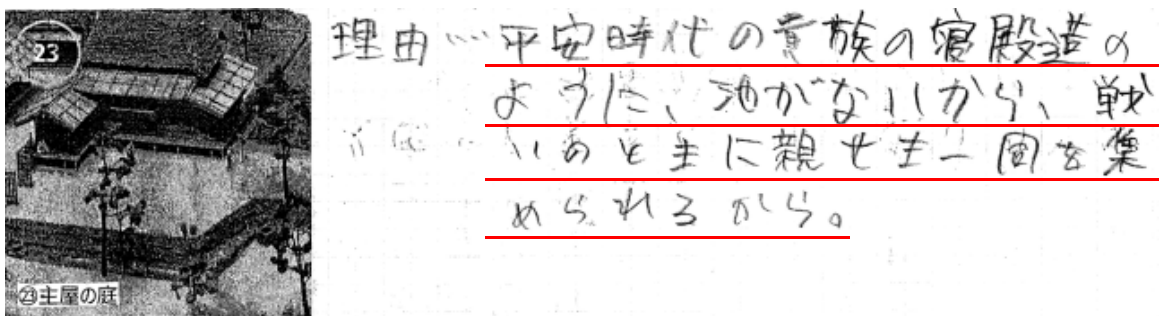 23
㉓主屋の庭
理由…平安時代の貴族の寝殿造の
ように、池がないから、戦
いのときに親せき一同を集
められるから。